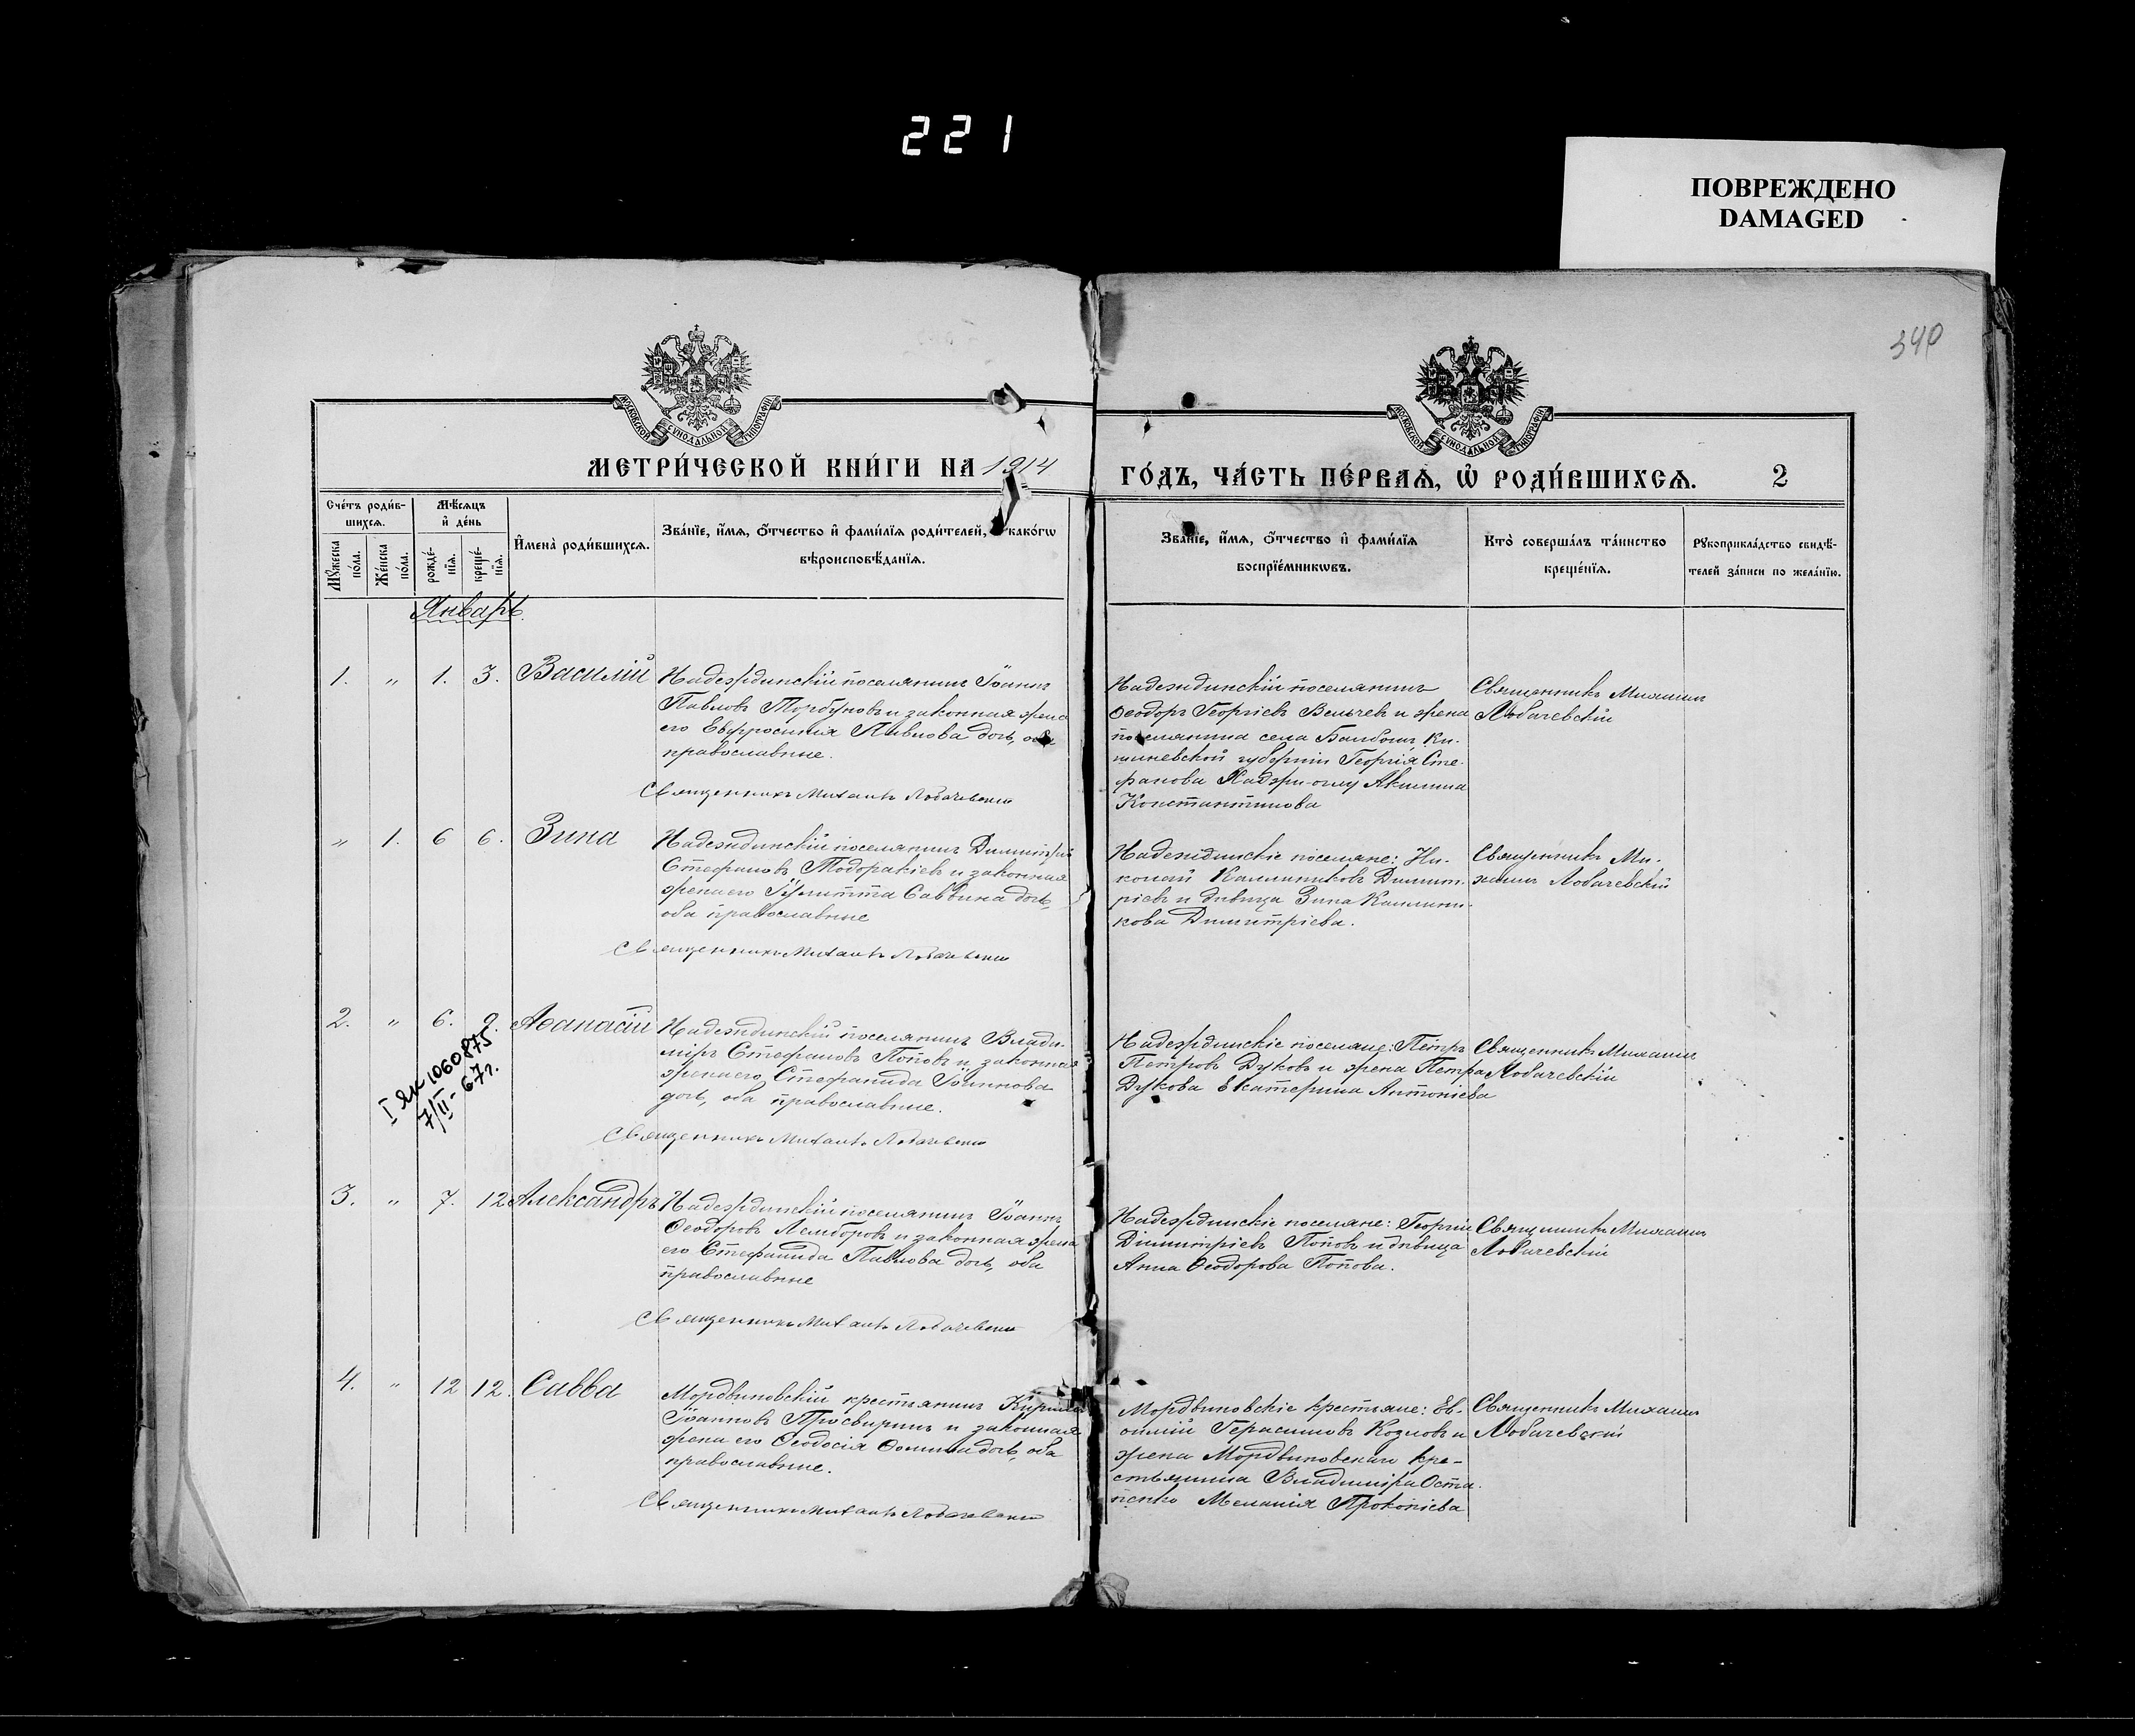 221
ПОВРЕЖДЕНО
DAMAGED
340
МОСКОВСКОЙ СѴНОДАЛЬНОЙ ТИПОГРАФІИ
МОСКОВСКОЙ СѴНОДАЛЬНОЙ ТИПОГРАФІИ
МЕТРИ́ЧЕСКОЙ КНИ́ГИ НА 1914
ГО́ДЪ, ЧА́СТЬ ПЕ́РВАѦ, Ѡ҆ РОДИ́ВШИХСѦ. 2
Сче́тъ роди́в-
шихсѧ.
Мѣ́сѧцъ
и҆ де́нь
Мꙋ́жеска
по́ла.
Же́нска
по́ла.
рожде́-
нїѧ.
креще́-
нїѧ.
И҆мена̀ роди́вшихсѧ.
Зва́нїе, и҆́мѧ, ѻ҆́тчество и҆ фами́лїѧ роди́телей, како́гѡ
вѣроисповѣ́данїѧ.
Зва́нїе, и҆́мѧ, ѻ҆́тчество и҆ фами́лїѧ
воспрїе́мникѡвъ.
Кто̀ соверша́лъ та́инство
креще́нїѧ.
Рꙋкоприкла́дство свидѣ́-
телей за́писи по жела́нїю.
Январь.
1. " 1. 3. Василій
Надеждинскій поселянинъ Іоаннъ
Павловъ Торбуновъ и законная жена
его Евфросинія Павлова дочь, оба
православные.
Священникъ Михаилъ Лобачевскій
Надеждинскій поселянинъ
Ѳеодоръ Георгіевъ Вельчевъ и жена
поселянина села Ки-
шиневской губерніи Георгія Сте-
фанова Хаджи-оглу Акилина
Константинова
Священникъ Михаилъ
Лобачевскій
" 1. 6 6. Зина
Надеждинскій поселянинъ Димитрій
Стефановъ Тодоракіевъ и законная
жена его Іулитта Саввина дочь,
оба православные
Священникъ Михаилъ Лобачевскій
Надеждинскіе поселяне: Ни-
колай Каллиниковъ Димит-
ріевъ и дѣвица Зина Каллини-
кова Димитріева.
Священникъ Ми-
хаилъ Лобачевскій
2. " 6. 9. Аѳанасій
I ЯК 1060875
7/II-67г.
Надеждинскій поселянинъ Влади-
міръ Стефановъ Поповъ и законная
жена его Стефанида Іоаннова
дочь, оба православные.
Священникъ Михаилъ Лобачевскій
Надеждинскіе поселяне: Петръ
Петровъ Дуковъ и жена Петра
Дукова Екатерина Антоніева
Священникъ Михаилъ
Лобачевскій
3. " 7. 12 Александръ
Надеждинскій поселянинъ Іоаннъ
Ѳеодоровъ Лемборовъ и законная жена
его Стефанида Павлова дочь, оба
православные
Священникъ Михаилъ Лобачевскій
Надеждинскіе поселяне: Георгій
Димитріевъ Поповъ и дѣвица
Анна Ѳеодорова Попова.
Священникъ Михаилъ
Лобачевскій
4. " 12 12. Савва
Мордвиновскій крестьянинъ Кириллъ
Іоанновъ Просвиринъ и законная
жена его Ѳеодосія Ѳомина дочь, оба
православные.
Священникъ Михаилъ Лобачевскій
Мордвиновскіе крестьяне: Ев-
ѳимій Герасимовъ Козловъ и
жена Мордвиновскаго кре-
стьянина Владиміра Оста-
пенко Меланія Прокопіева
Священникъ Михаилъ
Лобачевскій